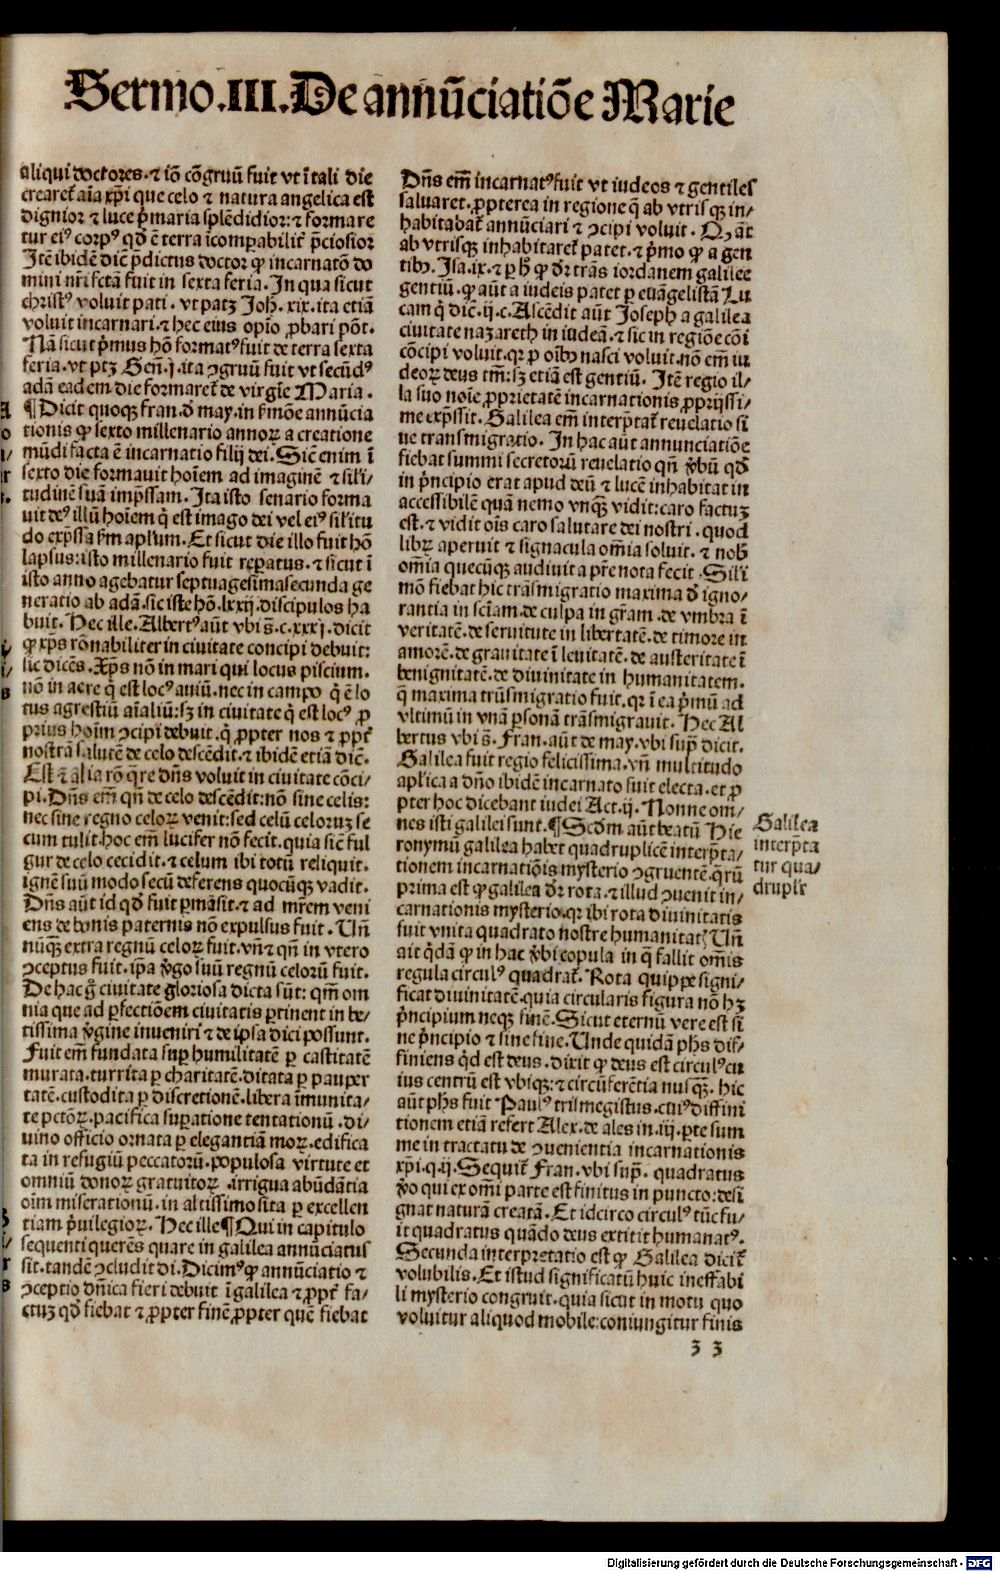 Sermo.III.De annūciatiōe Marie
aliqui doctores.⁊ iō cōgruū fuit vt ī tali die
crearet᷑ aīa xp̄i que celo ⁊ natura angelica est
dignior ⁊ luce p̄maria splēdidior:⁊ formare
tur eiꝰ corpꝰ qd̄ ē terra īcomꝑabilit᷑ p̄ciosior
Itē ibidē dic̄ p̄dictus doctor ꝙ incarnatō do
mini nr̄i fc̄tā fuit in sexta feria. In qua sicut
christꝰ voluit pati. vt patꝫ Joh. xix. ita etiā
voluit incarnari.⁊ hec eius opio ꝓbari pōt.
Nā sicut p̄mus hō formatꝰ fuit de terra sexta
feria.vt ptꝫ Gen̄.j.ita ꝯgruū fuit vt secūdꝰ
adā eadem die formaret᷑ de virgīe Maria.
¶Dicit quoqꝫ fran.d̄ may.in ẜmōe annūcia
tionis ꝙ sexto millenario annoꝝ a creatione
mūdi facta ē incarnatio filij dei. Sic̄ enim ī
sexto die formauit hoīem ad imaginē ⁊ sil'i/
tudinē suā imp̄ssam. Ita isto senario forma
uit deꝰ illū hoīem q̄ est imago dei vel eiꝰ sil'itu
do exp̄ssa ẜm apl'um. Et sicut die illo fuit hō
lapsus:isto millenario fuit reꝑatus.⁊ sicut ī
isto anno agebatur septuagesimasecunda ge
neratio ab adā.sic iste hō.lxxij.discipulos ha
buit. Hec ille. Albertꝰ aūt vbi s̄.c.xxxj.dicit
ꝙ xp̄s rōnabiliter in ciuitate concipi debuit:
sic dicēs. Xp̄s nō in mari qui locus pisciū.
nō in aere q̄ est locꝰ auiū.nec in campo q̄ ē lo
tus agrestiū aīaliū:sꝫ in ciuitate q̄ est locꝰ ꝓ
prius hoīm ꝯcipi debuit.q̄ ꝓpter nos ⁊ ꝓpt᷑
nostrā salutē de celo descēdit.⁊ ibidē etiā dic̄.
Est ⁊ alia rō q̄re dn̄s voluit in ciuitate cōci/
pi. Dn̄s em̄ qn̄ de celo descēdit:nō sine celis:
nec sine regno celoꝝ venit:sed celū celorum se
cum tulit.hoc em̄ lucifer nō fecit.quia sic̄ ful
gur de celo cecidit.⁊ celum ibi totū reliquit.
ignē suū modo secū deferens quocūqꝫ vadit.
Dn̄s aūt id qd̄ fuit ꝑmāsit.⁊ ad mr̄em veni
ens de bonis paternis nō expulsus fuit. Un̄
nūqꝫ extra regnū celoꝝ fuit.vn̄ ⁊ qn̄ in vtero
ꝯceptus fuit.ip̄a v̄go suū regnū celorū fuit.
De hac g̊ ciuitate gloriosa dicta sūt: qm̄ om
nia que ad ꝑfectiōem ciuitatis ꝑtinent in be/
tissima v̄gine inueniri ⁊ de ipsa dici possunt.
Fuit em̄ fundata suꝑ humilitatē ꝑ castitatē
murata.turrita ꝑ charitatē.ditata ꝑ pauper
tatē.custodita ꝑ discretionē.libera īmunita/
te pctōꝝ.pacifica suꝑatione tentationū.di/
uino officio ornata ꝑ elegantiā moꝝ.edifica
ta in refugiū peccatorū.populosa virtute et
omniū donoꝝ gratuitoꝝ irrigua abūdātia
oīm miserationū.in altissimo sita ꝑ excellen
tiam p̄uilegioꝝ. Hec ille¶Qui in capitulo
sequenti querēs quare in galilea annūciatus
sit.tandē ꝯcludit di. Dicimꝰ ꝙ annūciatio ⁊
ꝯceptio dn̄ica fieri debuit ī galilea ⁊ ꝓpt᷑ fa/
ctuꝫ qd̄ fiebat ⁊ ꝓpter finē ꝓpter quē fiebat
Dn̄s em̄ incarnatꝰ fuit vt iudeos ⁊ gentiles
saluaret.ꝓpterea in regione q̄ ab vtrisqꝫ in/
habitabat᷑ annūciari ⁊ ꝯcipi voluit. Ꝙ aūt
ab vtrisqꝫ inhabitaret᷑ patet.⁊ p̄mo ꝙ a gen
tibꝰ. Isa.ix.⁊ ꝑ hͦ ꝙ dr̄ trās iordanem galilee
gentiū.ꝙ aūt a iudeis patet ꝑ euāgelistā Lu
cam q̄ dic̄.ij.c. Ascēdit aūt Joseph a galilea
ciuitate nazareth in iudeā.⁊ sic in regiōe cōi
cōcipi voluit.qꝛ ꝓ oībꝰ nasci voluit.nō em̄ iu
deoꝝ deus tm̄:sꝫ etiā est gentiū. Itē regio il/
la suo noīe ꝓprietatē incarnationis ꝓprijssi/
me exp̄ssit. Galilea em̄ interp̄tat᷑ reuelatio si
ue transmigratio. In hac aūt annunciatiōe
fiebat summi secretorū reuelatio qn̄ v̄bū qd̄
in p̄ncipio erat apud deū ⁊ lucē inhabitat in
accessibilē quā nemo vnqꝫ vidit:caro factuꝫ
est.⁊ vidit ois caro salutare dei nostri.quod
libꝝ aperuit ⁊ signacula om̄ia soluit.⁊ nob̄
om̄ia quecūqꝫ audiuit a pr̄e nota fecit. Sil'i
mō fiebat hic trāsmigratio maxima d̄ igno/
rantia in sciam.de culpa in gr̄am.de vmbra ī
veritatē.de seruitute in libertatē.de timore in
amorē.de grauitate ī leuitatē.de austeritate ī
benignitatē.de diuinitate in humanitatem.
q̄ maxima trāsmigratio fuit.qꝛ ī ea p̄mū ad
vltimū in vnā ꝑsonā trāsmigrauit. Hec Al
bertus vbi s̄. Fran.aūt de may.vbi sup̄ dicit.
Galilea fuit regio felicissima.vn̄ multitudo
apl'ica a dn̄o ibidē incarnato fuit electa.et ꝓ
pter hoc dicebant iudei Act.ij. Nonne om/
nes isti galilei sunt.¶Scd̄m aūt beatū Hie
ronymū galilea habet quadruplicē interp̄ta/
tionem incarnatiōis mysterio ꝯgruentē.q̄rū
prima est ꝙ galilea dr̄ rota.⁊ illud ꝯuenit in/
carnationis mysterio.qꝛ ibi rota diuinitatis
fuit vnita quadrato nostre humanitatꝭ Un̄
ait q̄dā ꝙ in hac v̄bi copula in q̄ fallit om̄is
regula circulꝰ quadrat᷑. Rota quippe signi/
ficat diuinitatē.quia circularis figura nō hꝫ
p̄ncipium neqꝫ finē. Sicut eternū vere est si
ne p̄ncipio ⁊ sine fine. Unde quidā ph̄s dif/
finiens qd̄ est deus.dixit ꝙ deus est circulꝰ cu
ius centrū est vbiqꝫ:⁊ circūferētia nusqꝫ. hic
aūt ph̄s fuit Paulꝰ trismegistus.cuiꝰ diffini
tionem etiā refert Alex.de ales in.iij.ꝑte sum
me in tractatu de ꝯuenientia incarnationis
xp̄i.q.ij. Sequit᷑ Fran.vbi sup̄. quadratus
v̄o qui ex om̄i parte est finitus in puncto:desi
gnat naturā creatā. Et idcirco circulꝰ tūc fu/
it quadratus quādo deus extitit humanatꝰ.
Secunda interpretatio est ꝙ Galilea dicit᷑
volubilis. Et istud significatū huic ineffabi
li mysterio congruit.quia sicut in motu quo
voluitur aliquod mobile:coniungitur finis
Galilea
interp̄ta
tur qua/
druplr̄
ʒ ʒ
Digitalisierung gefördert durch die Deutsche Forschungsgemeinschaft - DFG